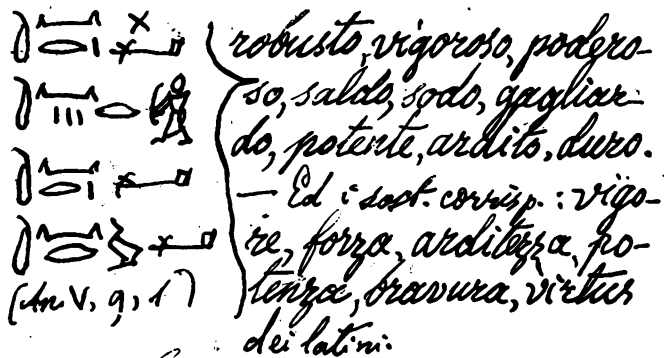 robusto, vigoroso, podero-
so, saldo, sodo, gagliar-
do, potente, ardito, duro.
— Ed i sost. corrisp.: vigo-
re, forza, arditezza, po-
(An. V, 9, 1) tenza, bravura, virtus
dei latini.